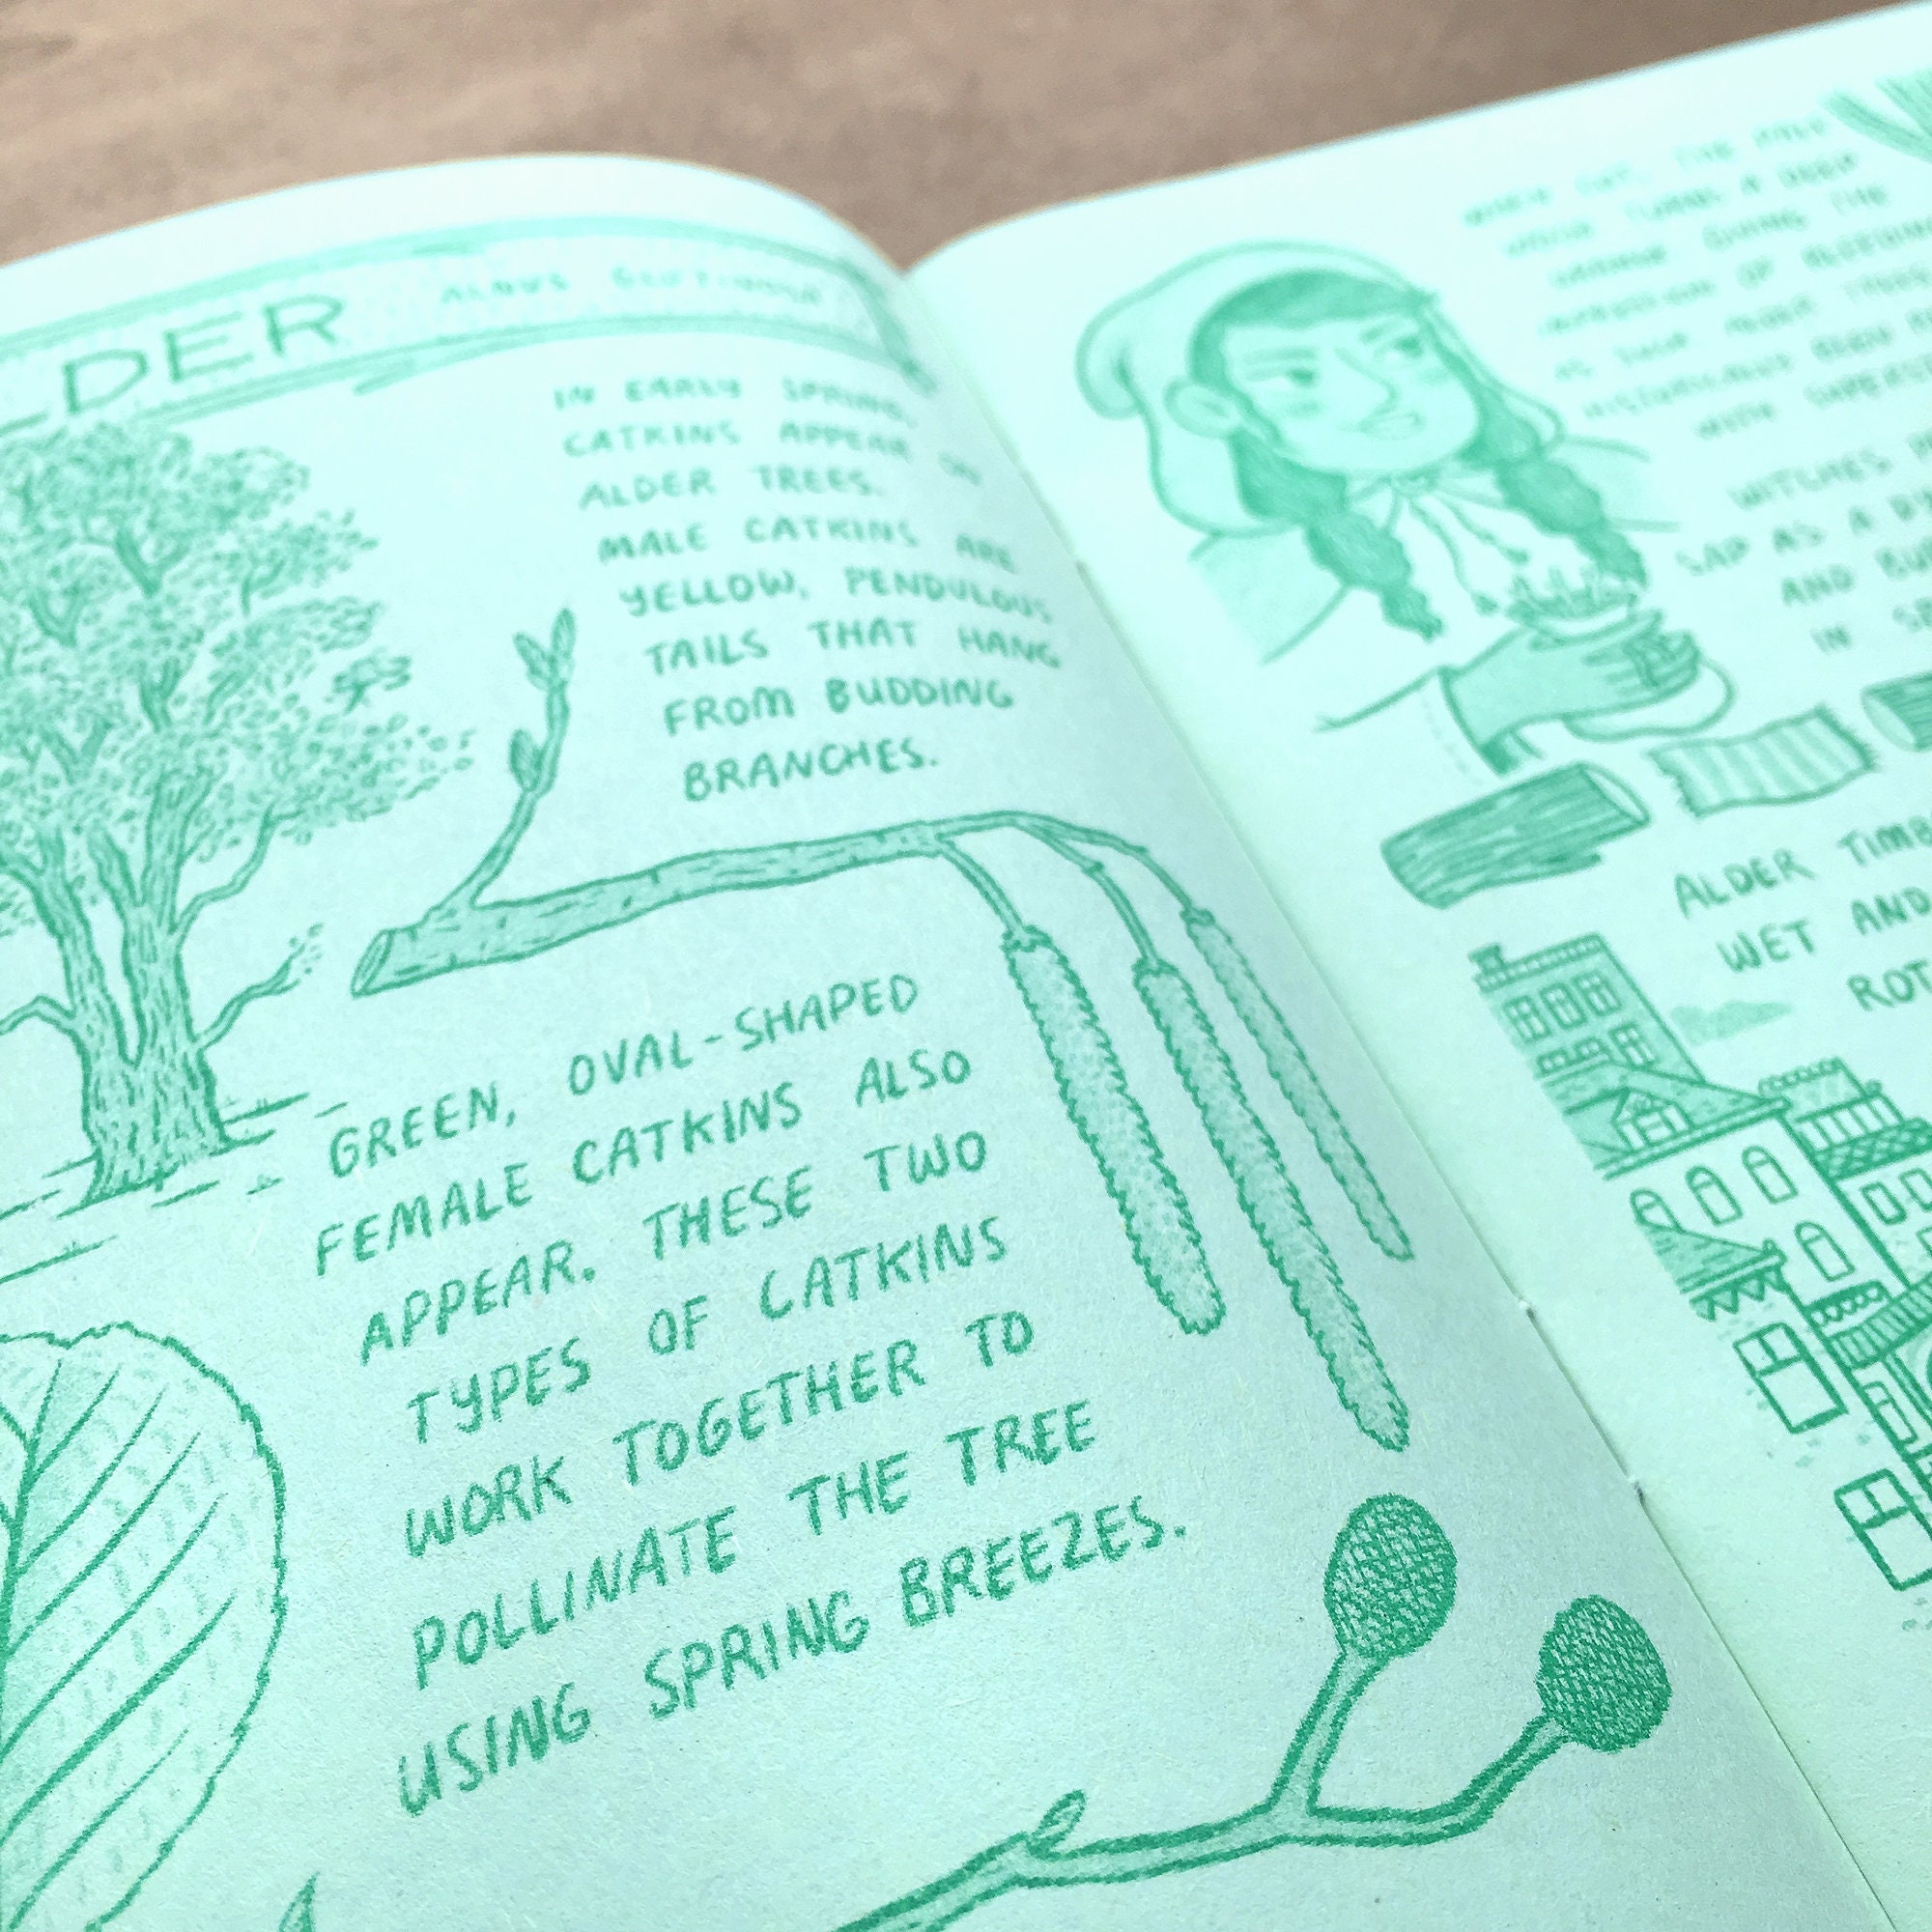 LDER ALNUS GLUTINOSA
IN EARLY SPRING,
CATKINS APPEAR ON
ALDER TREES.
MALE CATKINS ARE
YELLOW, PENDULOUS
TAILS THAT HANG
FROM BUDDING
BRANCHES.
GREEN, OVAL-SHAPED
FEMALE CATKINS ALSO
APPEAR. THESE TWO
TYPES OF CATKINS
WORK TOGETHER TO
POLLINATE THE TREE
USING SPRING BREEZES.
WHEN CUT, THE PALE
WOOD TURNS A DEEP
ORANGE GIVING THE
IMPRESSION OF BLEEDING
HISTORICALLY BEEN
WITH
WITCHES
SAP AS A
AND
IN
ALDER
WET AND
ROT